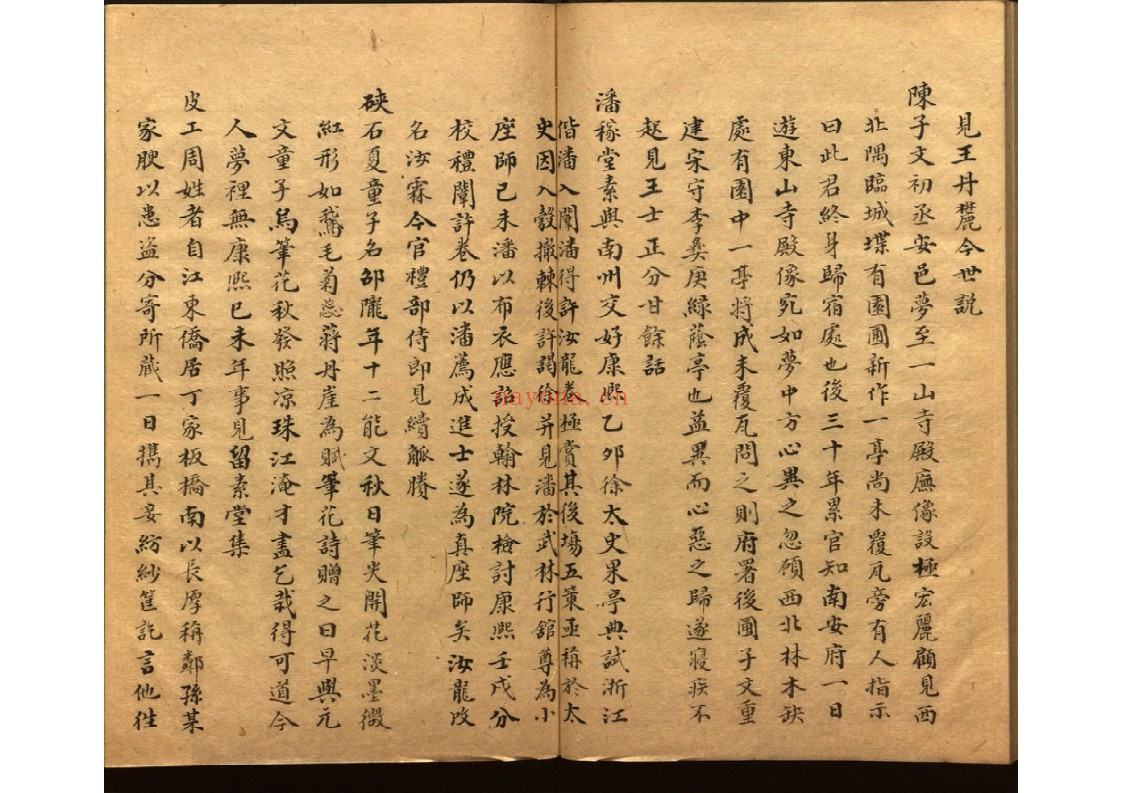 見王丹麓今世説
陳子文初丞安邑夢至一山寺殿廡像設極宏麗顧見西
北隅臨城堞有園圃新作一亭尚未覆瓦旁有人指示
曰此君終身歸宿處也後三十年累官知南安府一日
遊東山寺殿像宛如夢中方心異之忽顧西北林木缺
處有園中一亭將成未覆瓦問之則府署後圃子文重
建宋守李彝庚綠蔭亭也益異而心惡之歸遂寢疾不
起見王士正分甘餘話
潘稼堂素與南州交好康熙乙卯徐太史果亭典試浙江
偕潘入闈潘得許汝龍卷極賞其後塲五策亟稱於太
史因入彀撤棘後許謁徐并見潘於武林行舘尊為小
座師已未潘以布衣應詔授翰林院檢討康熙壬戌分
校禮闈許卷仍以潘薦成進士遂為真座師矣汝龍改
名汝霖今官禮部侍郎見續觚賸
硤石夏童子名邵隴年十二能文秋日筆尖開花淡墨微
紅形如鵞毛菊蕊蔣丹崖為賦筆花詩贈之曰早與元
文童子烏筆花秋發照凉珠江淹才盡乞哉得可道今
人夢裡無康熙已未年事見留素堂集
皮工周姓者自江東僑居丁家板橋南以長厚稱鄰孫某
家腴以患盜分寄所藏一日携其妾紡紗筐託言他徃
nayona.cn